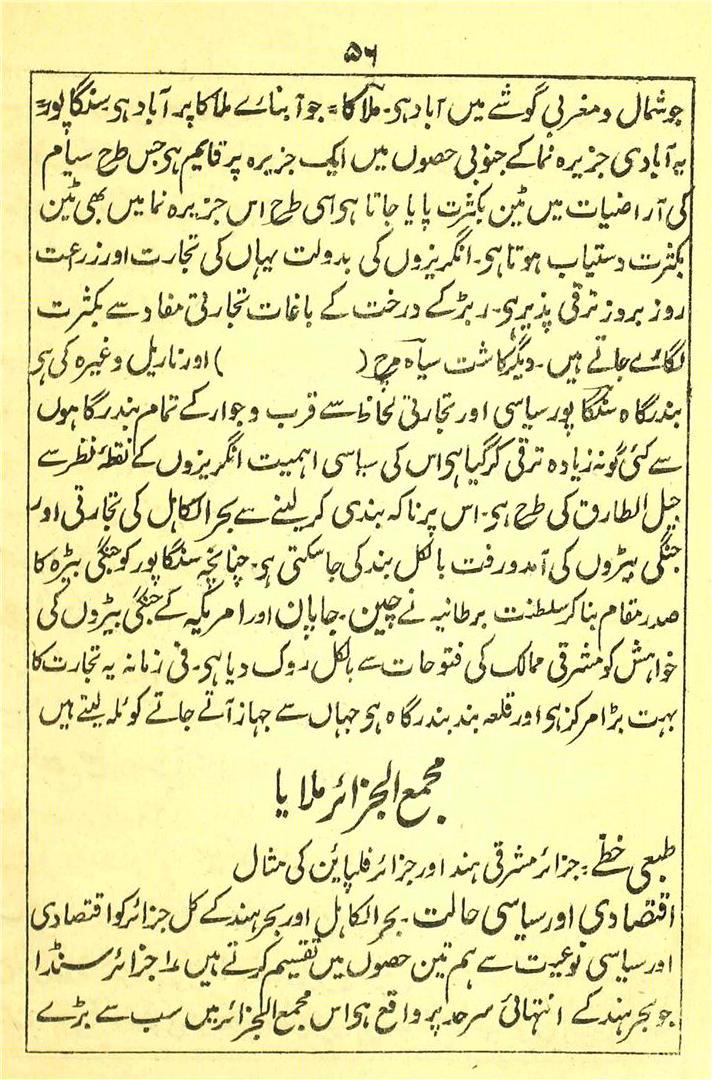 ۵۶
جو شمال و مغربی گوشے میں آباد ہی۔ ملاکا = جو آبناے ملاکا پر آباد ہی سنگاپور=
یہ آبادی جزیرہ نما کے جنوبی حصوں میں ایک جزیرہ پر قایم ہی جس طرح سیام
کی آراضیات میں ٹین بکثرت پایا جاتا ہی اسی طرح اس جزیرہ نما میں بھی ٹین
بکثرت دستیاب ہوتا ہی۔ انگریزوں کی بدولت یہاں کی تجارت اور زرعت
روز بروز ترقی پذیر ہی۔ ربڑ کے درخت کے باغات تجارتی مفاد سے بکثرت
لگائے جاتے ہیں۔ دیگر کاشت سیاہ مرچ ( ) اور ناریل وغیرہ کی ہی
بندرگاہ سنگاپور سیاسی اور تجارتی لحاظ سے قرب و جوار کے تمام بندرگاہوں
سے کئی گونہ زیادہ ترقی کر گیا ہی اس کی سیاسی اہمیت انگریزوں کے نقطۂ نظر سے
جبل الطارق کی طرح ہی۔ اس پر ناکہ بندی کر لینے سے بحر الکاہل کی تجارتی اور
جنگی بیڑوں کی آمدورفت بالکل بند کی جا سکتی ہی۔ چنانچہ سنگاپور کو جنگی بیڑہ کا
صدر مقام بنا کر سلطنت برطانیہ نے چین۔ جاپان اور امریکہ کے جنگی بیڑوں کی
خواہش کو مشرقی ممالک کی فتوحات سے بالکل روک دیا ہی۔ فی زمانہ یہ تجارت کا
بہت بڑا مرکز ہی اور قلعہ بند بندرگاہ ہی جہاں سے جہاز آتے جاتے کوئلہ لیتے ہیں
مجمع الجزائر ملایا
طبعی خطے = جزائر مشرقی ہند اور جزائر فلپائن کی مثال
اقتصادی اور سیاسی حالت۔ بحر الکاہل اور بحر ہند کے کل جزائر کو اقتصادی
اور سیاسی نوعیت سے ہم تین حصوں میں تقسیم کرتے ہیں ۱؍ جزائر سنڈا
جو بحر ہند کے انتہائی سرحد پر واقع ہی اس مجمع الجزائر میں سب سے بڑے